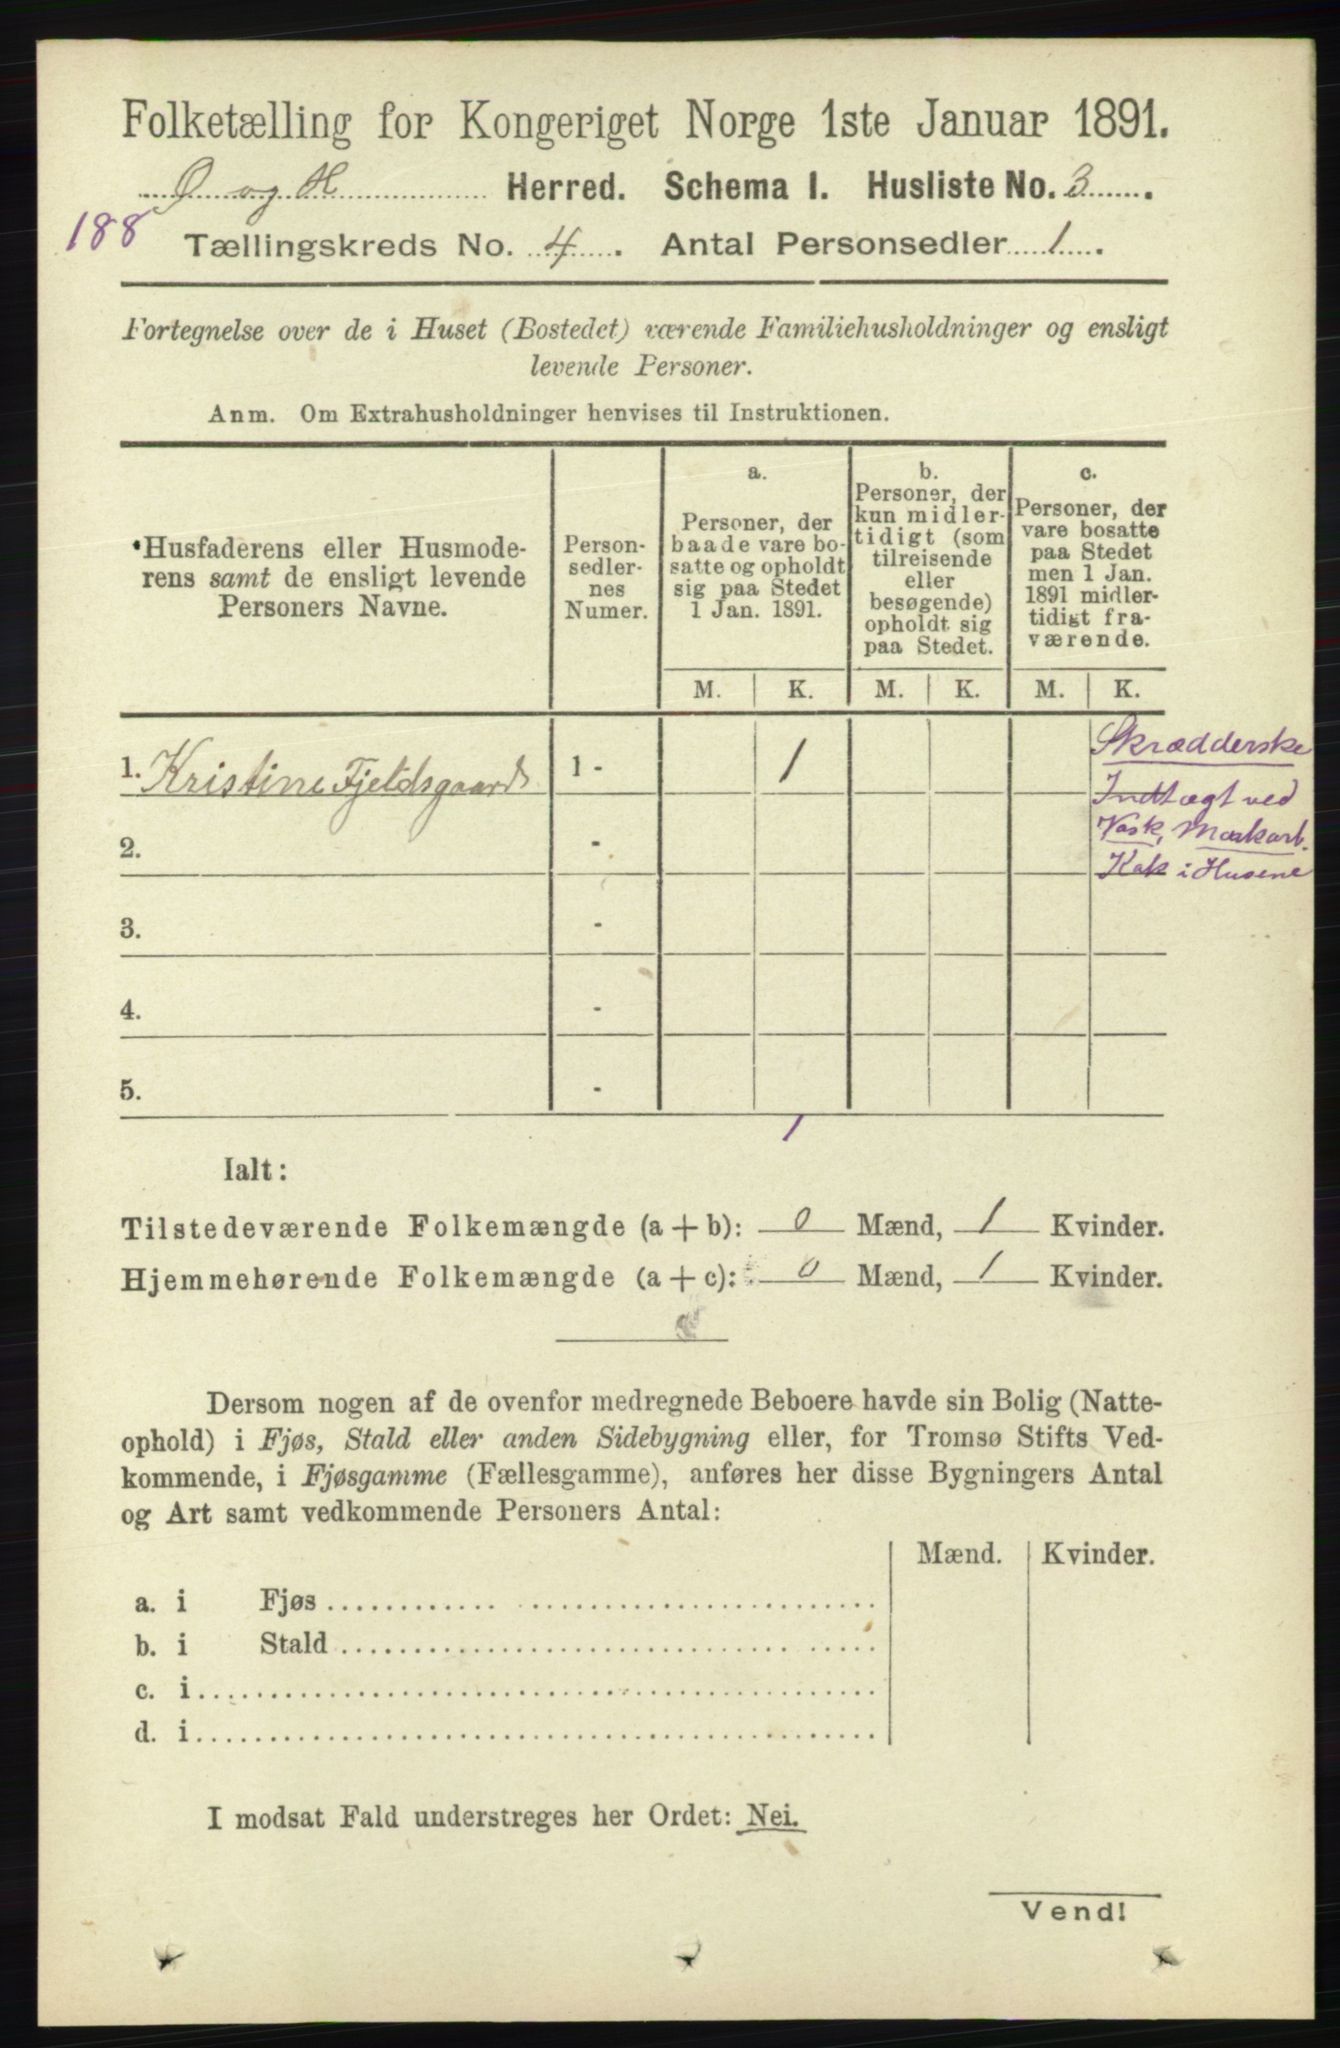 Folketælling for Kongeriget Norge 1ste Januar 1891.
Ø og H Herred. Schema I. Husliste No. 3.
188
Tællingskreds No. 4. Antal Personsedler 1.
Fortegnelse over de i Huset (Bostedet) værende Familiehusholdninger og ensligt
levende Personer.
Anm. Om Extrahusholdninger henvises til Instruktionen.
Husfaderens eller Husmode-
rens samt de ensligt levende
Personers Navne.
Person-
sedler-
nes
Numer.
a.
Personer, der
baade vare bo-
satte og opholdt
sig paa Stedet
1 Jan. 1891.
b.
Personer, der
kun midler-
tidigt (som
tilreisende
eller
besøgende)
opholdt sig
paa Stedet.
c.
Personer, der
vare bosatte
paa Stedet
men 1 Jan.
1891 midler-
tidigt fra-
værende.
M. K. M. K. M. K.
1. Kristine Fjeldsgaard 1 - 1
Skrædderske
Indtægt ved
Vask, Markarb.
Kok i Husene
2. -
3. -
4. -
5. -
1
Ialt:
Tilstedeværende Folkemængde (a + b): 0 Mænd, 1 Kvinder.
Hjemmehørende Folkemængde (a + c): 0 Mænd, 1 Kvinder.
Dersom nogen af de ovenfor medregnede Beboere havde sin Bolig (Natte-
ophold) i Fjøs, Stald eller anden Sidebygning eller, for Tromsø Stifts Ved-
kommende, i Fjøsgamme (Fællesgamme), anføres her disse Bygningers Antal
og Art samt vedkommende Personers Antal:
Mænd. Kvinder.
a. i Fjøs
b. i Stald
c. i
d. i
I modsat Fald understreges her Ordet: Nei.
Vend!